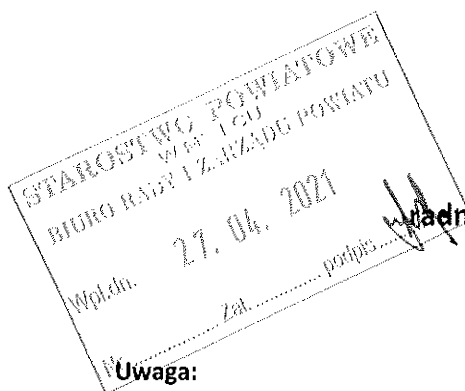 STAROSTWO POWIATOWE
BIURO RADY I ZARZĄDU POWIATU
27. 04. 2021
radn
Wpł.dn.
Nr ............ Zał. ............ podpis ......
Uwaga: